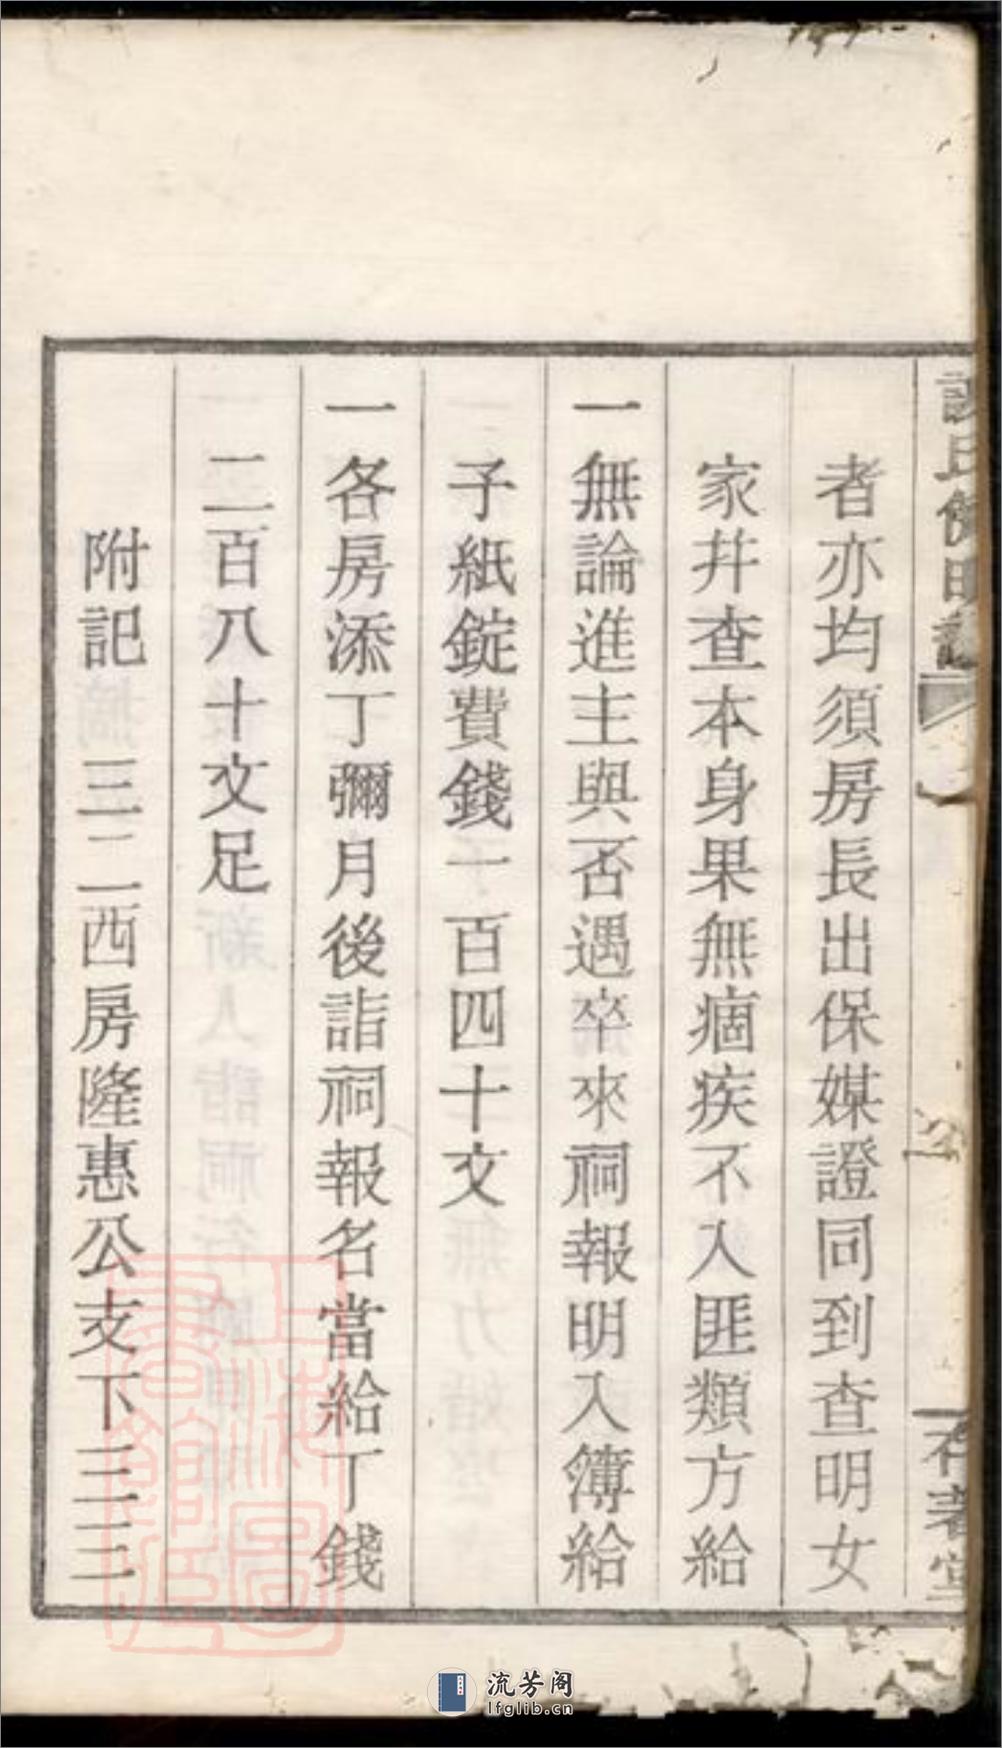 者亦均須房長出保媒證同到查明女
家幷查本身果無痼疾不入匪類方給
一無論進主與否遇卒來祠報明入簿給
子紙錠費錢一百四十文
一各房添丁彌月後詣祠報名當給丁錢
二百八十文足
附記三二西房隆惠公支下三三
流芳阁
lfglib.cn